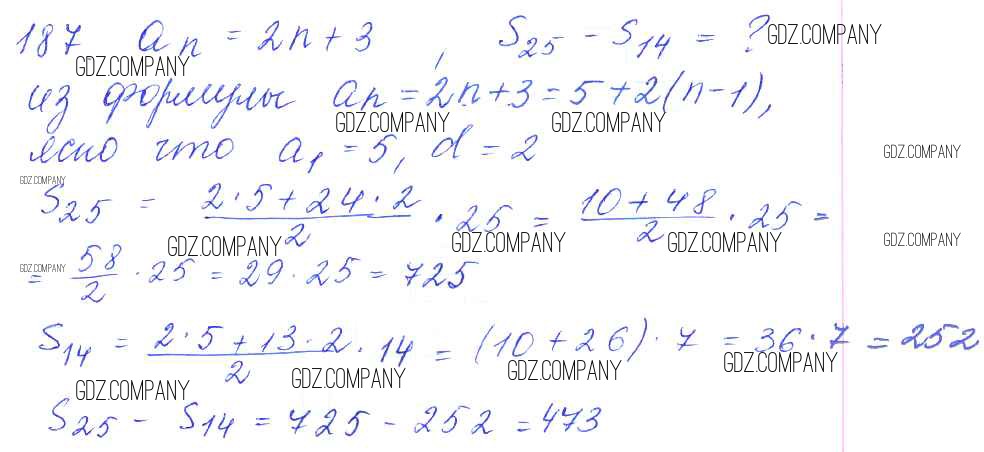 187 aₙ = 2n + 3, S₂₅ - S₁₄ = ? GDZ.COMPANY
GDZ.COMPANY
из формулы aₙ = 2n + 3 = 5 + 2(n - 1),
GDZ.COMPANY GDZ.COMPANY
ясно что a₁ = 5, d = 2 GDZ.COMPANY
GDZ.COMPANY
S₂₅ = (2·5 + 24·2)/2 · 25 = (10 + 48)/2 · 25 =
GDZ.COMPANY GDZ.COMPANY GDZ.COMPANY GDZ.COMPANY
GDZ.COMPANY
= 58/2 · 25 = 29 · 25 = 725
S₁₄ = (2·5 + 13·2)/2 · 14 = (10 + 26) · 7 = 36 · 7 = 252
GDZ.COMPANY GDZ.COMPANY GDZ.COMPANY GDZ.COMPANY
S₂₅ - S₁₄ = 725 - 252 = 473